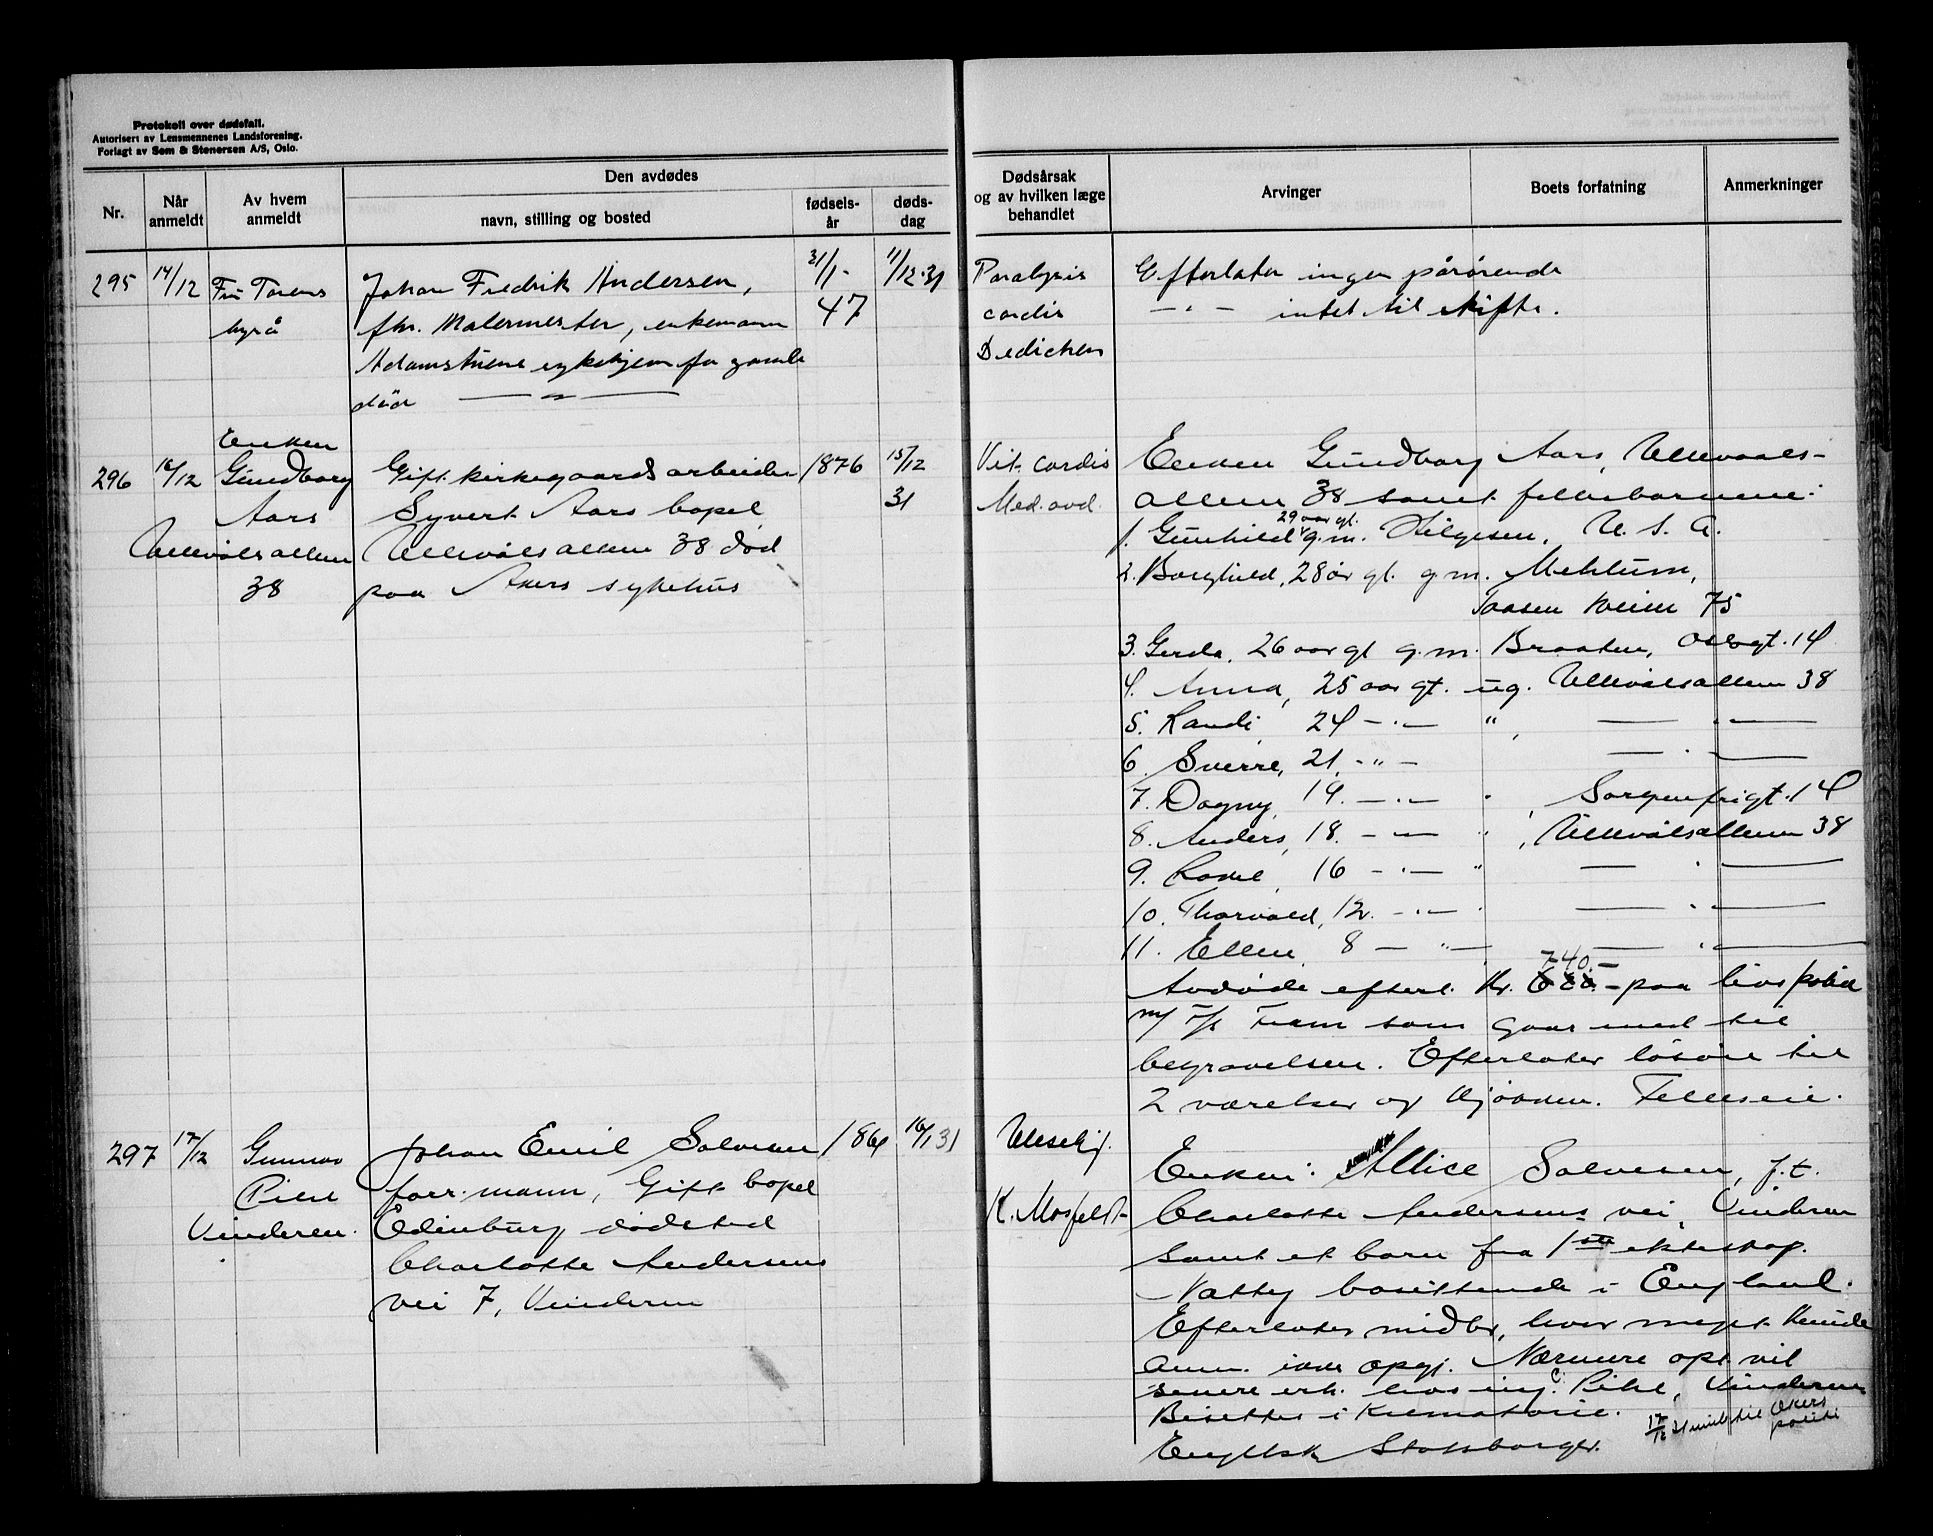 Protokoll over dødsfall.
Autorisert av Lensmennenes Landsforening.
Forlagt av Sem & Stenersen A/S, Oslo.
Nr.
Når anmeldt
Av hvem anmeldt
Den avdødes
navn, stilling og bosted
fødsels-år
døds-dag
Dødsårsak og av hvilken læge behandlet
Arvinger
Boets forfatning
Anmerkninger
295
14/12
byrå
Johan Fredrik Andersen,
fhv. Malermester, enkemann
Adamstuens sykehjem for gamle
død — " —
31/1-
47
11/12-31
Paralysis
cordis
Dedichen
Efterlater ingen pårørende
— " — intet til skifte.
296
16/12
Enken
Gundborg
Aars
Ullevålsalleen
38
Gift kirkegaardsarbeider
Syvert Aars bopel
Ullevålsalleen 38 død
paa Akers sykehus
1876
15/12
31
Vit. cordis
Med. avd.
Enken Gundborg Aars, Ullevaals-
alleen 38 samt fellesbarnene:
29 aar gl.
1. Gunhild g.m. Helgesen, U.S.A.
2. Borghild, 28 år gl. g.m. Mehlum,
Taasen veien 75
3. Gerda, 26 aar gl g.m. Braaten, Oslogt. 14
4. Anna, 25 aar gl. ug. Ullevålsalleen 38
5. Randi, 24 — " — " — " —
6. Sverre, 21. — " — — " —
7. Dagny, 19. — " — " Sorgenfrigt. 14
8. Anders, 18. — " — ", Ullevålsalleen 38
9. 16 — " — " — " —
10. Thorvald, 12. — " — " — " —
11. Ellen, 8 — " — — " —
740.-
Avdøde efterl. Kr. 600.- paa livspolise
m/ F/s Fram som gaar med til
begravelsen. Efterlater løsøre til
2 værelser og kjøkken. Felleseie.
297
17/12
Gunnar
Pihl
Vinderen.
Johan Emil Salvesen
forr. mann, Gift bopel
Edinburg dødsted
Charlotte Andersens
vei 7, Vinderen
1864
16/12 31
K. Mosfeldt
Enken: Allice Salvesen, f.t.
Charlotte Andersens vei, Vinderen
samt et barn fra 1ste ekteskap.
Natty bosittende i England.
Efterlater midler, hvor meget kunde
anm. ikke opgi. Nærmere opl. vil
senere erh. hos ing. C. Pihl, Vinderen
Bisettes i Krematorie.
Engelsk Statsborger.
17/12 31 meldt til Akers
politi